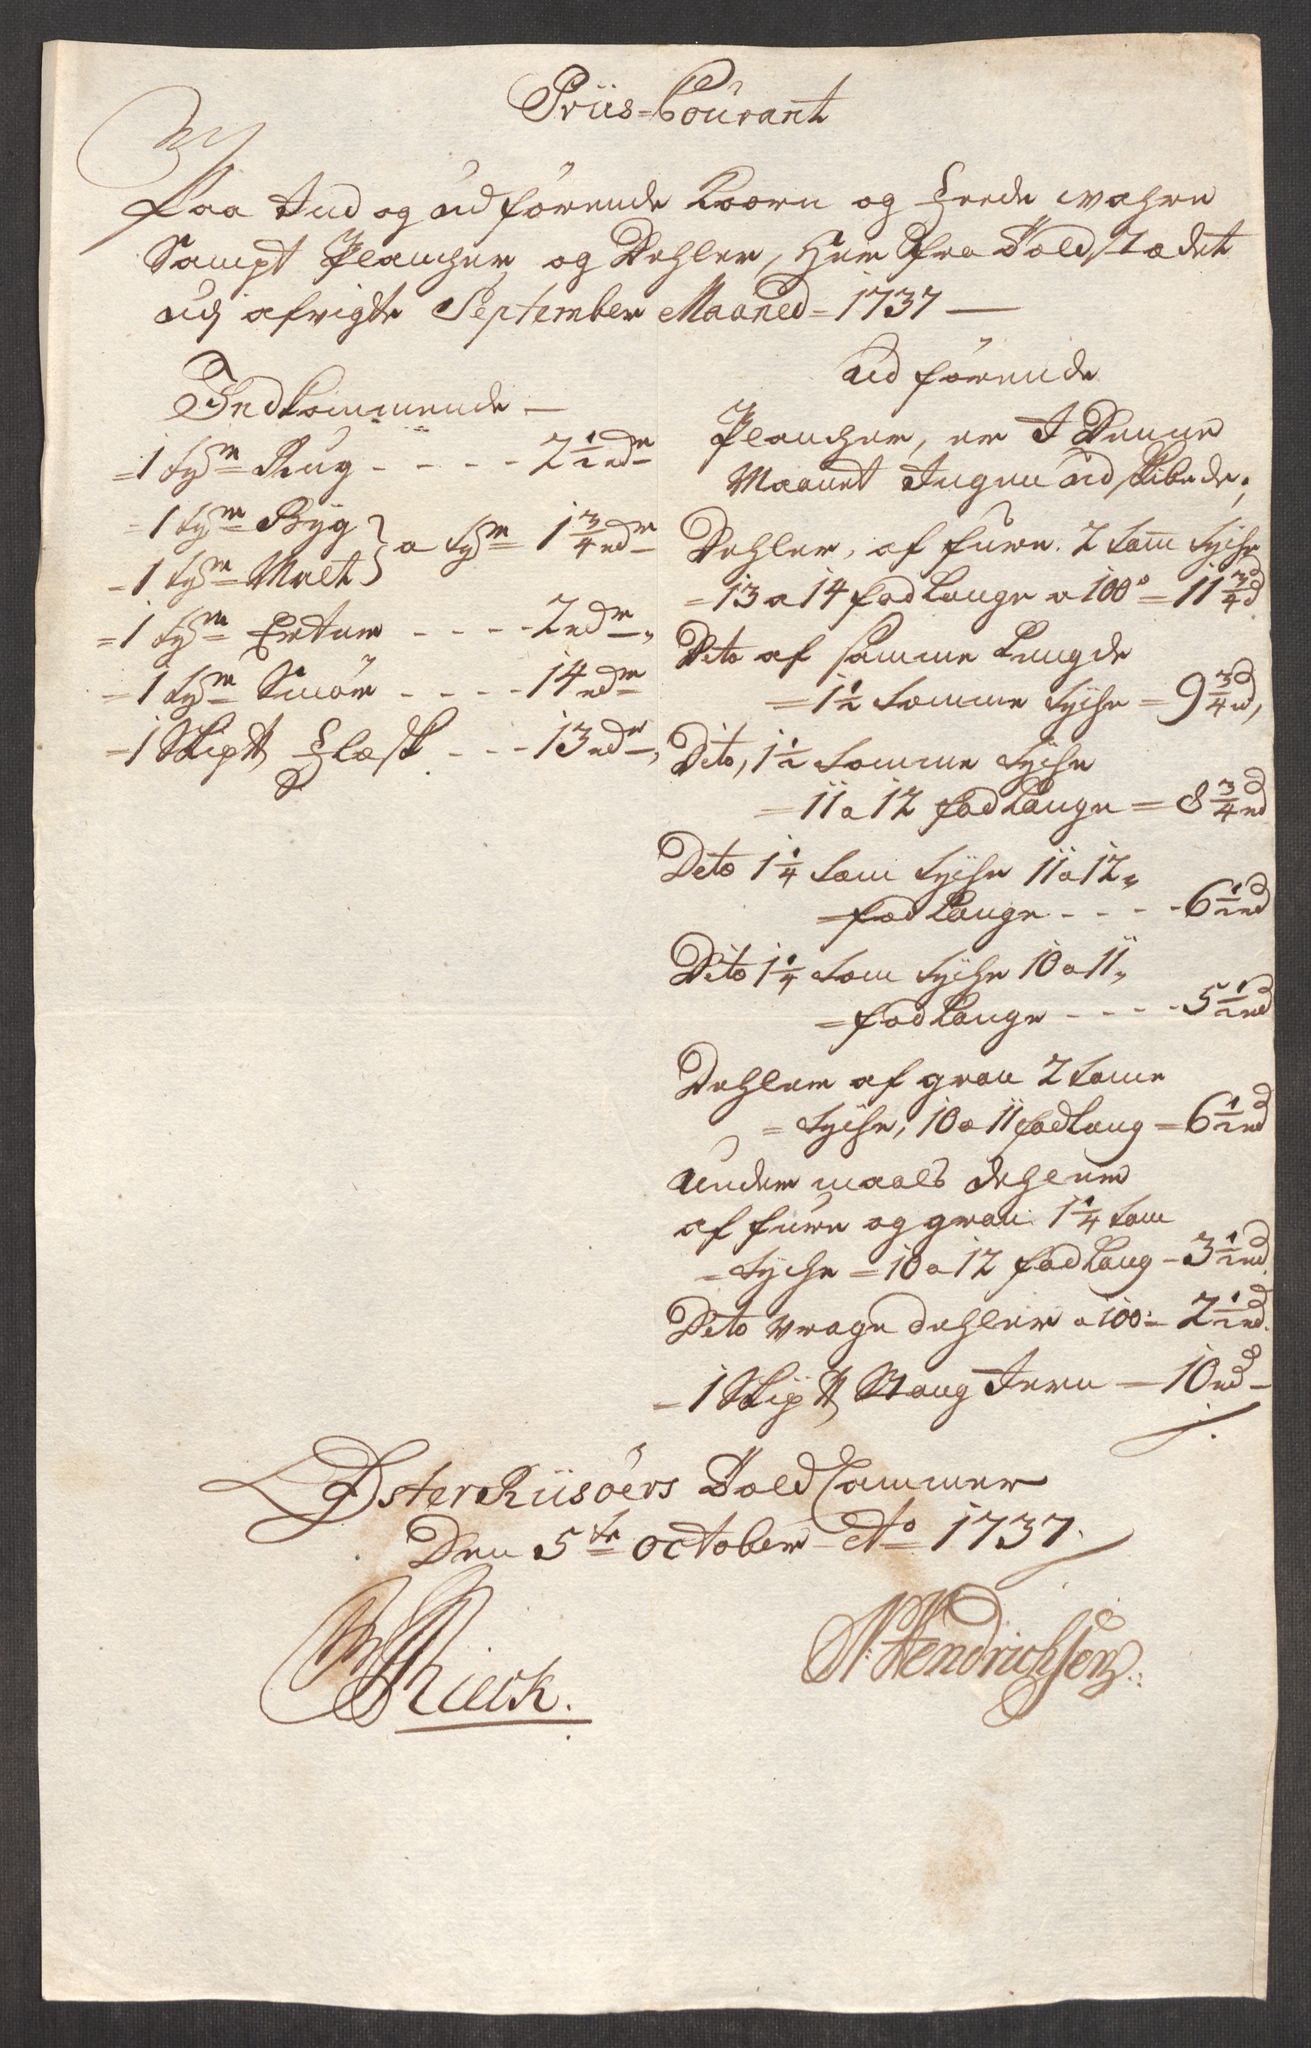 Priis-Courant
Paa Ind og udförende Koorn og Feede wahre
Sampt Plancher og Dehler, Her fra Toldstædet
udj afvigte September Maaned = 1737 —
Indkommende —
= 1 tyne Rug - - - - 2 1/2 rdr
= 1 tyne Byg } a tyne 1 3/4 rdr
= 1 tyne Malt
= 1 tyne Erter - - - - 2 rdr
= 1 tyne Smör - - - - 14 rdr
= 1 Skip℔ Flæsk - - - 13 rdr
Udförende
Plancher, er I Denne
Maanet Ingen udskibede;
Dehler, af fure. 2 tom tyche
= 13 a 14 fod Lange a 100° = 11 3/4 rd
Dito af samme Lengde
= 1 1/2 tomme tyche = 9 3/4 rd,
Dito, 1 1/2 tomme tyche
= 11 a 12 fod Lange = 8 3/4 rd
Dito 1 1/4 tom tyche 11 a 12,
= fod Lange - - - - 6 1/2 rd
Dito 1 1/4 tom tyche 10 a 11,
= fod Lange - - - - 5 1/2 rd
Dehler af gran 2 tome
= tyche, 10 a 11 fod Lang = 6 1/2 rd
Under maals dehler
af fure og gran 1 1/4 tom
= tyche = 10 a 12 fod Lang - 3 1/2 rd.
Dito vrage dehler a 100: = 2 1/2 rd.
= 1 Skip℔ Stang Jern — 10 rd —
ØsterRiisöers Told Cammer
Den 5te October Ao 1737.
Rieck.
N: Hendrichsen